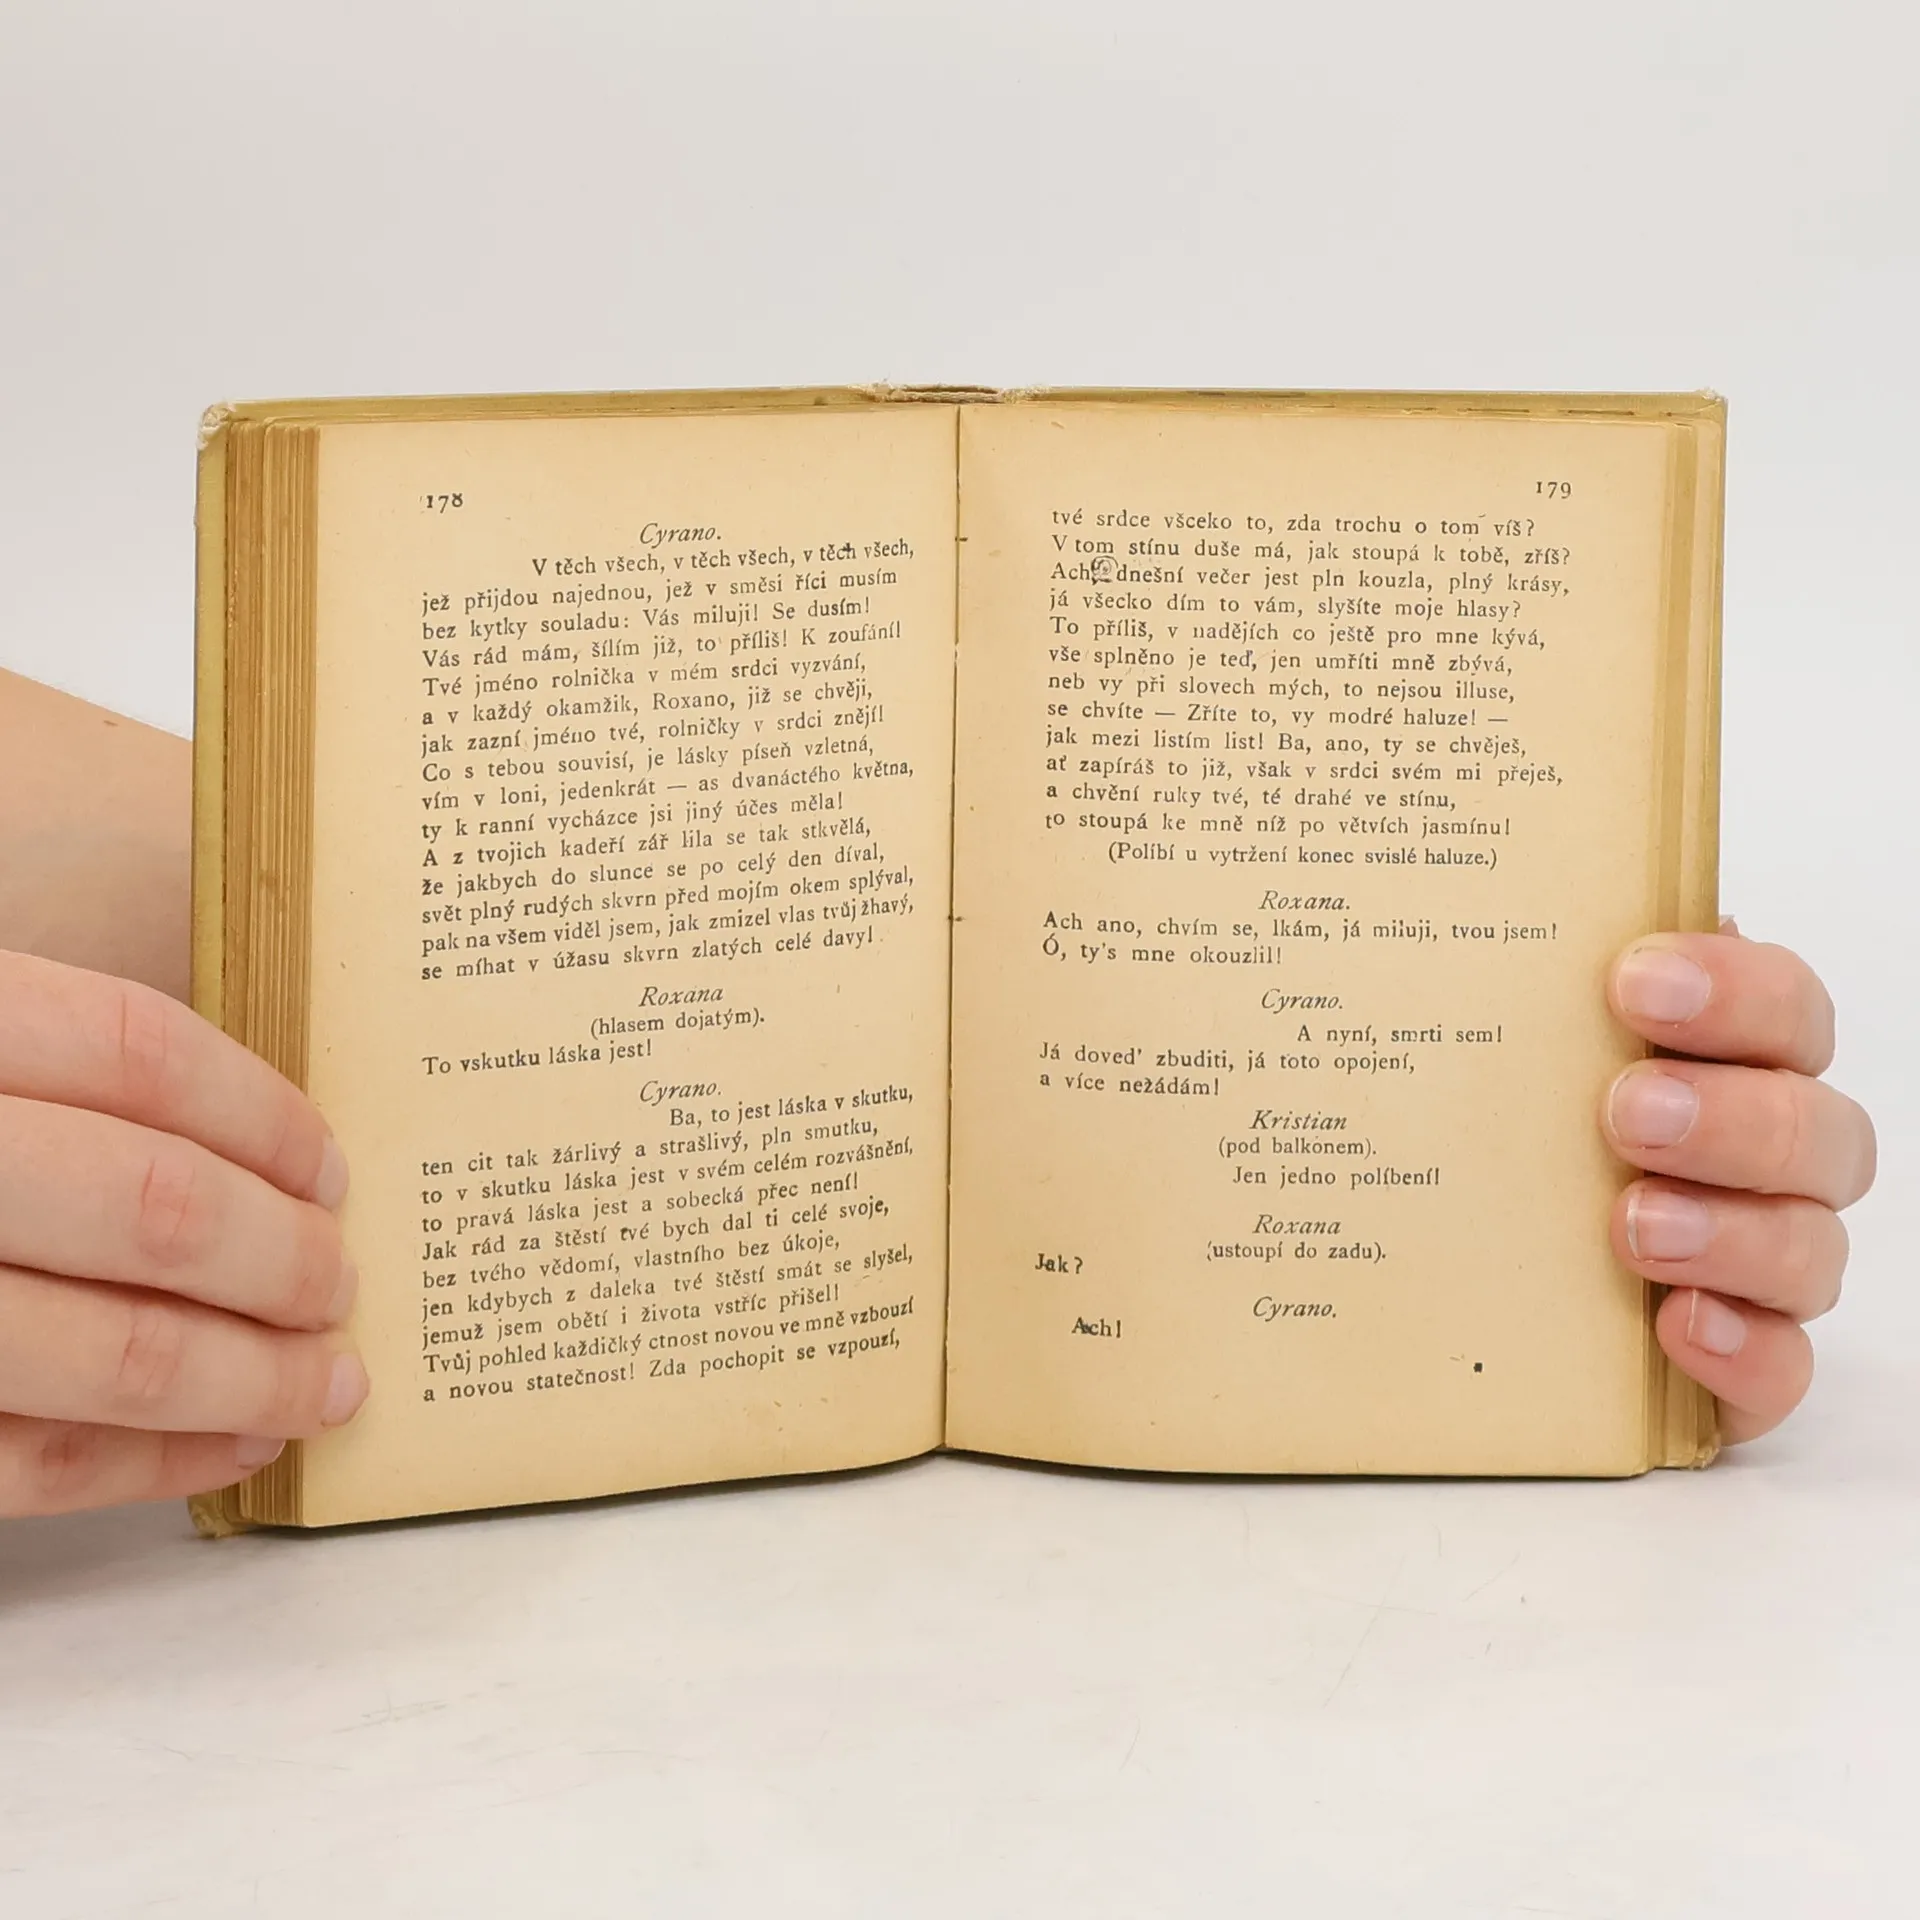 178
Cyrano.
V těch všech, v těch všech, v těch všech,
jež přijdou najednou, jež v směsi říci musím
bez kytky souladu: Vás miluji! Se dusím!
Vás rád mám, šílím již, to příliš! K zoufání!
Tvé jméno rolnička v mém srdci vyzvání,
a v každý okamžik, Roxano, již se chvěji,
jak zazní jméno tvé, rolničky v srdci znějí!
Co s tebou souvisí, je lásky píseň vzletná,
vím v loni, jedenkrát — as dvanáctého května,
ty k ranní vycházce jsi jiný účes měla!
A z tvojich kadeří zář lila se tak stkvělá,
že jakbych do slunce se po celý den díval,
svět plný rudých skvrn před mojím okem splýval,
pak na všem viděl jsem, jak zmizel vlas tvůj žhavý,
se míhat v úžasu skvrn zlatých celé davy!
Roxana
(hlasem dojatým).
To vskutku láska jest!
Cyrano.
Ba, to jest láska v skutku,
ten cit tak žárlivý a strašlivý, pln smutku,
to v skutku láska jest v svém celém rozvášnění,
to pravá láska jest a sobecká přec není!
Jak rád za štěstí tvé bych dal ti celé svoje,
bez tvého vědomí, vlastního bez úkoje,
jen kdybych z daleka tvé štěstí smát se slyšel,
jemuž jsem obětí i života vstříc přišel!
Tvůj pohled každičký ctnost novou ve mně vzbouzí
a novou statečnost! Zda pochopit se vzpouzí,
179
tvé srdce všceko to, zda trochu o tom víš?
V tom stínu duše má, jak stoupá k tobě, zříš?
Ach, dnešní večer jest pln kouzla, plný krásy,
já všecko dím to vám, slyšíte moje hlasy?
To příliš, v nadějích co ještě pro mne kývá,
vše splněno je teď, jen umříti mně zbývá,
neb vy při slovech mých, to nejsou illuse,
se chvíte — Zříte to, vy modré haluze! —
jak mezi listím list! Ba, ano, ty se chvěješ,
ať zapíráš to již, však v srdci svém mi přeješ,
a chvění ruky tvé, té drahé ve stínu,
to stoupá ke mně níž po větvích jasmínu!
(Políbí u vytržení konec svislé haluze.)
Roxana.
Ach ano, chvím se, lkám, já miluji, tvou jsem!
Ó, ty's mne okouzlil!
Cyrano.
A nyní, smrti sem!
Já doved' zbuditi, já toto opojení,
a více nežádám!
Kristian
(pod balkonem).
Jen jedno políbení!
Roxana
(ustoupí do zadu).
Jak?
Cyrano.
Ach!